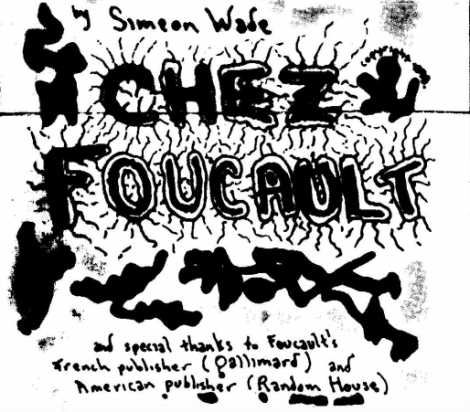 by Simeon Wade
CHEZ
FOUCAULT
and special thanks to Foucault's
French publisher (Gallimard) and
American publisher (Random House)